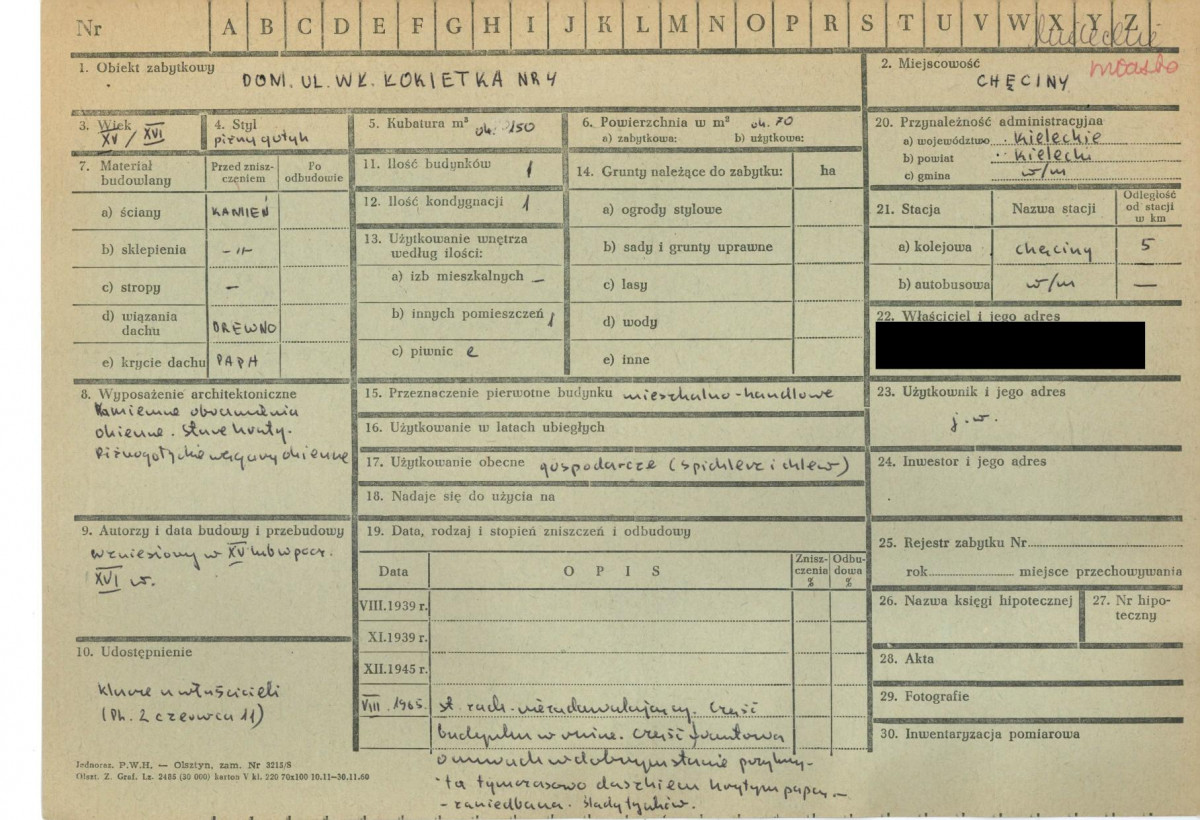 Nr A B C D E F G H I J K L M N O P R S T U V W X Y Z
kieleckie
miasto
1. Obiekt zabytkowy
DOM. UL. WŁ. ŁOKIETKA NR 4
2. Miejscowość
CHĘCINY
3. Wiek
XV / XVI
4. Styl
późny gotyk
5. Kubatura m³ ok. 150
6. Powierzchnia w m² ok. 70
a) zabytkowa: b) użytkowa:
20. Przynależność administracyjna
a) województwo kieleckie
b) powiat kielecki
c) gmina w/m
7. Materiał budowlany
Przed zniszczeniem
Po odbudowie
a) ściany KAMIEŃ
b) sklepienia -"-
c) stropy -
d) wiązania dachu DREWNO
e) krycie dachu PAPA
11. Ilość budynków 1
12. Ilość kondygnacji 1
13. Użytkowanie wnętrza
według ilości:
a) izb mieszkalnych —
b) innych pomieszczeń 1
c) piwnic
14. Grunty należące do zabytku: ha
a) ogrody stylowe
b) sady i grunty uprawne
c) lasy
d) wody
e) inne
21. Stacja
Nazwa stacji
Odległość
od stacji
w km
a) kolejowa chęciny 5
b) autobusowa w/m —
22. Właściciel i jego adres
8. Wyposażenie architektoniczne
Kamienne obramienia
okienne. Stare kraty.
Późnogotyckie węgary okienne
15. Przeznaczenie pierwotne budynku mieszkalno-handlowe
16. Użytkowanie w latach ubiegłych
17. Użytkowanie obecne gospodarcze (spichlerz i chlew)
18. Nadaje się do użycia na
23. Użytkownik i jego adres
j.w.
24. Inwestor i jego adres
9. Autorzy i data budowy i przebudowy
wzniesiony w XV lub w pocz.
XVI w.
19. Data, rodzaj i stopień zniszczeń i odbudowy
Data
O P I S
Zniszczenia %
Odbudowa %
VIII.1939 r.
XI.1939 r.
XII.1945 r.
VIII.1965. st. zach. niezadawalający. Część
budynku w ruinie. Część frontowa
o murach w dobrym stanie przykry-
ta tymczasowo daszkiem krytym papą —
- zaniedbana. Ślady tynków.
25. Rejestr zabytku Nr
rok miejsce przechowywania
26. Nazwa księgi hipotecznej
27. Nr hipo-
teczny
10. Udostępnienie
Klucze u właścicieli
(Pl. 2 czerwca 11)
28. Akta
29. Fotografie
30. Inwentaryzacja pomiarowa
Jednocz. P.W.H. — Olsztyn, zam. Nr 3215/S
Olszt. Z. Graf. Lz. 2485 (30 000) karton V kl. 220 70x100 10.11-30.11.60